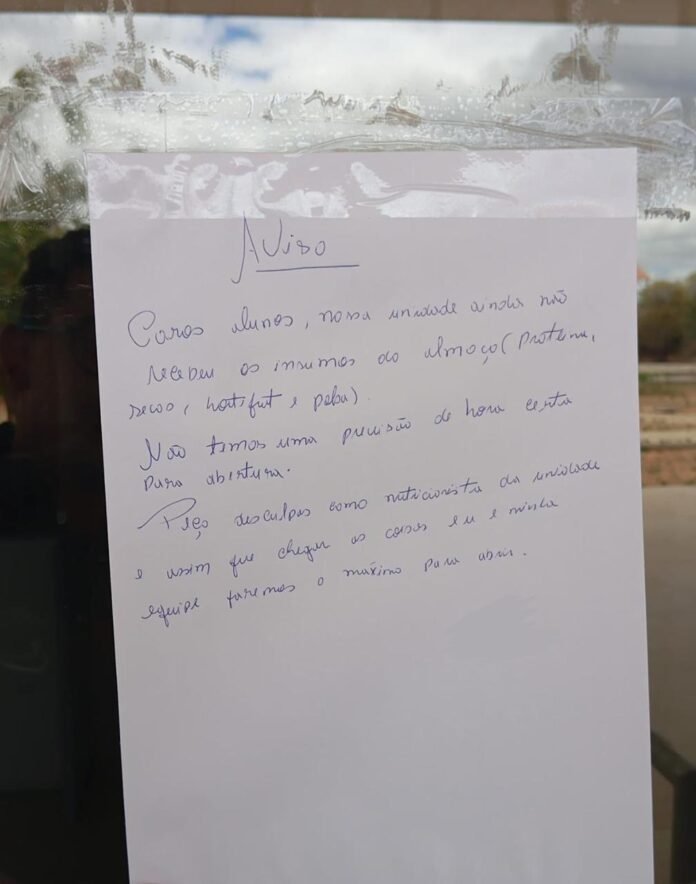 Aviso
Caros alunos, nossa unidade ainda não
recebeu os insumos do almoço (proteina,
secos, hortifrut e polpa).
Não temos uma precisão de hora certa
para abertura.
Peço desculpas como nutricionista da unidade
e assim que chegar as coisas eu e minha
equipe faremos o máximo para abrir.